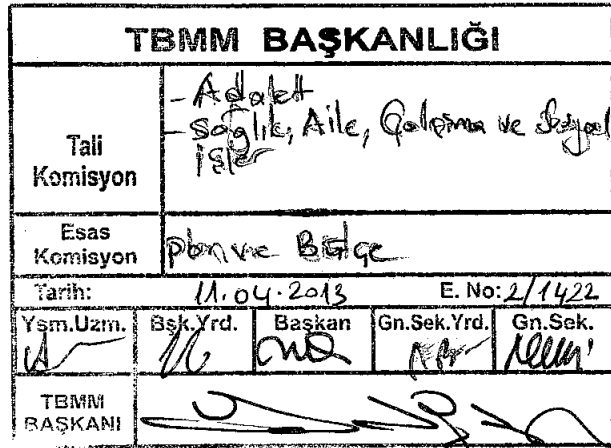 TBMM BAŞKANLIĞI
Tali Komisyon
- Adalet
- Sağlık, Aile, Çalışma ve Sosyal
İşler
Esas Komisyon
Plan ve Bütçe
Tarih: 11.04.2013 E. No: 2/1422
Ysm.Uzm. Bşk.Yrd. Başkan Gn.Sek.Yrd. Gn.Sek.
TBMM BAŞKANI